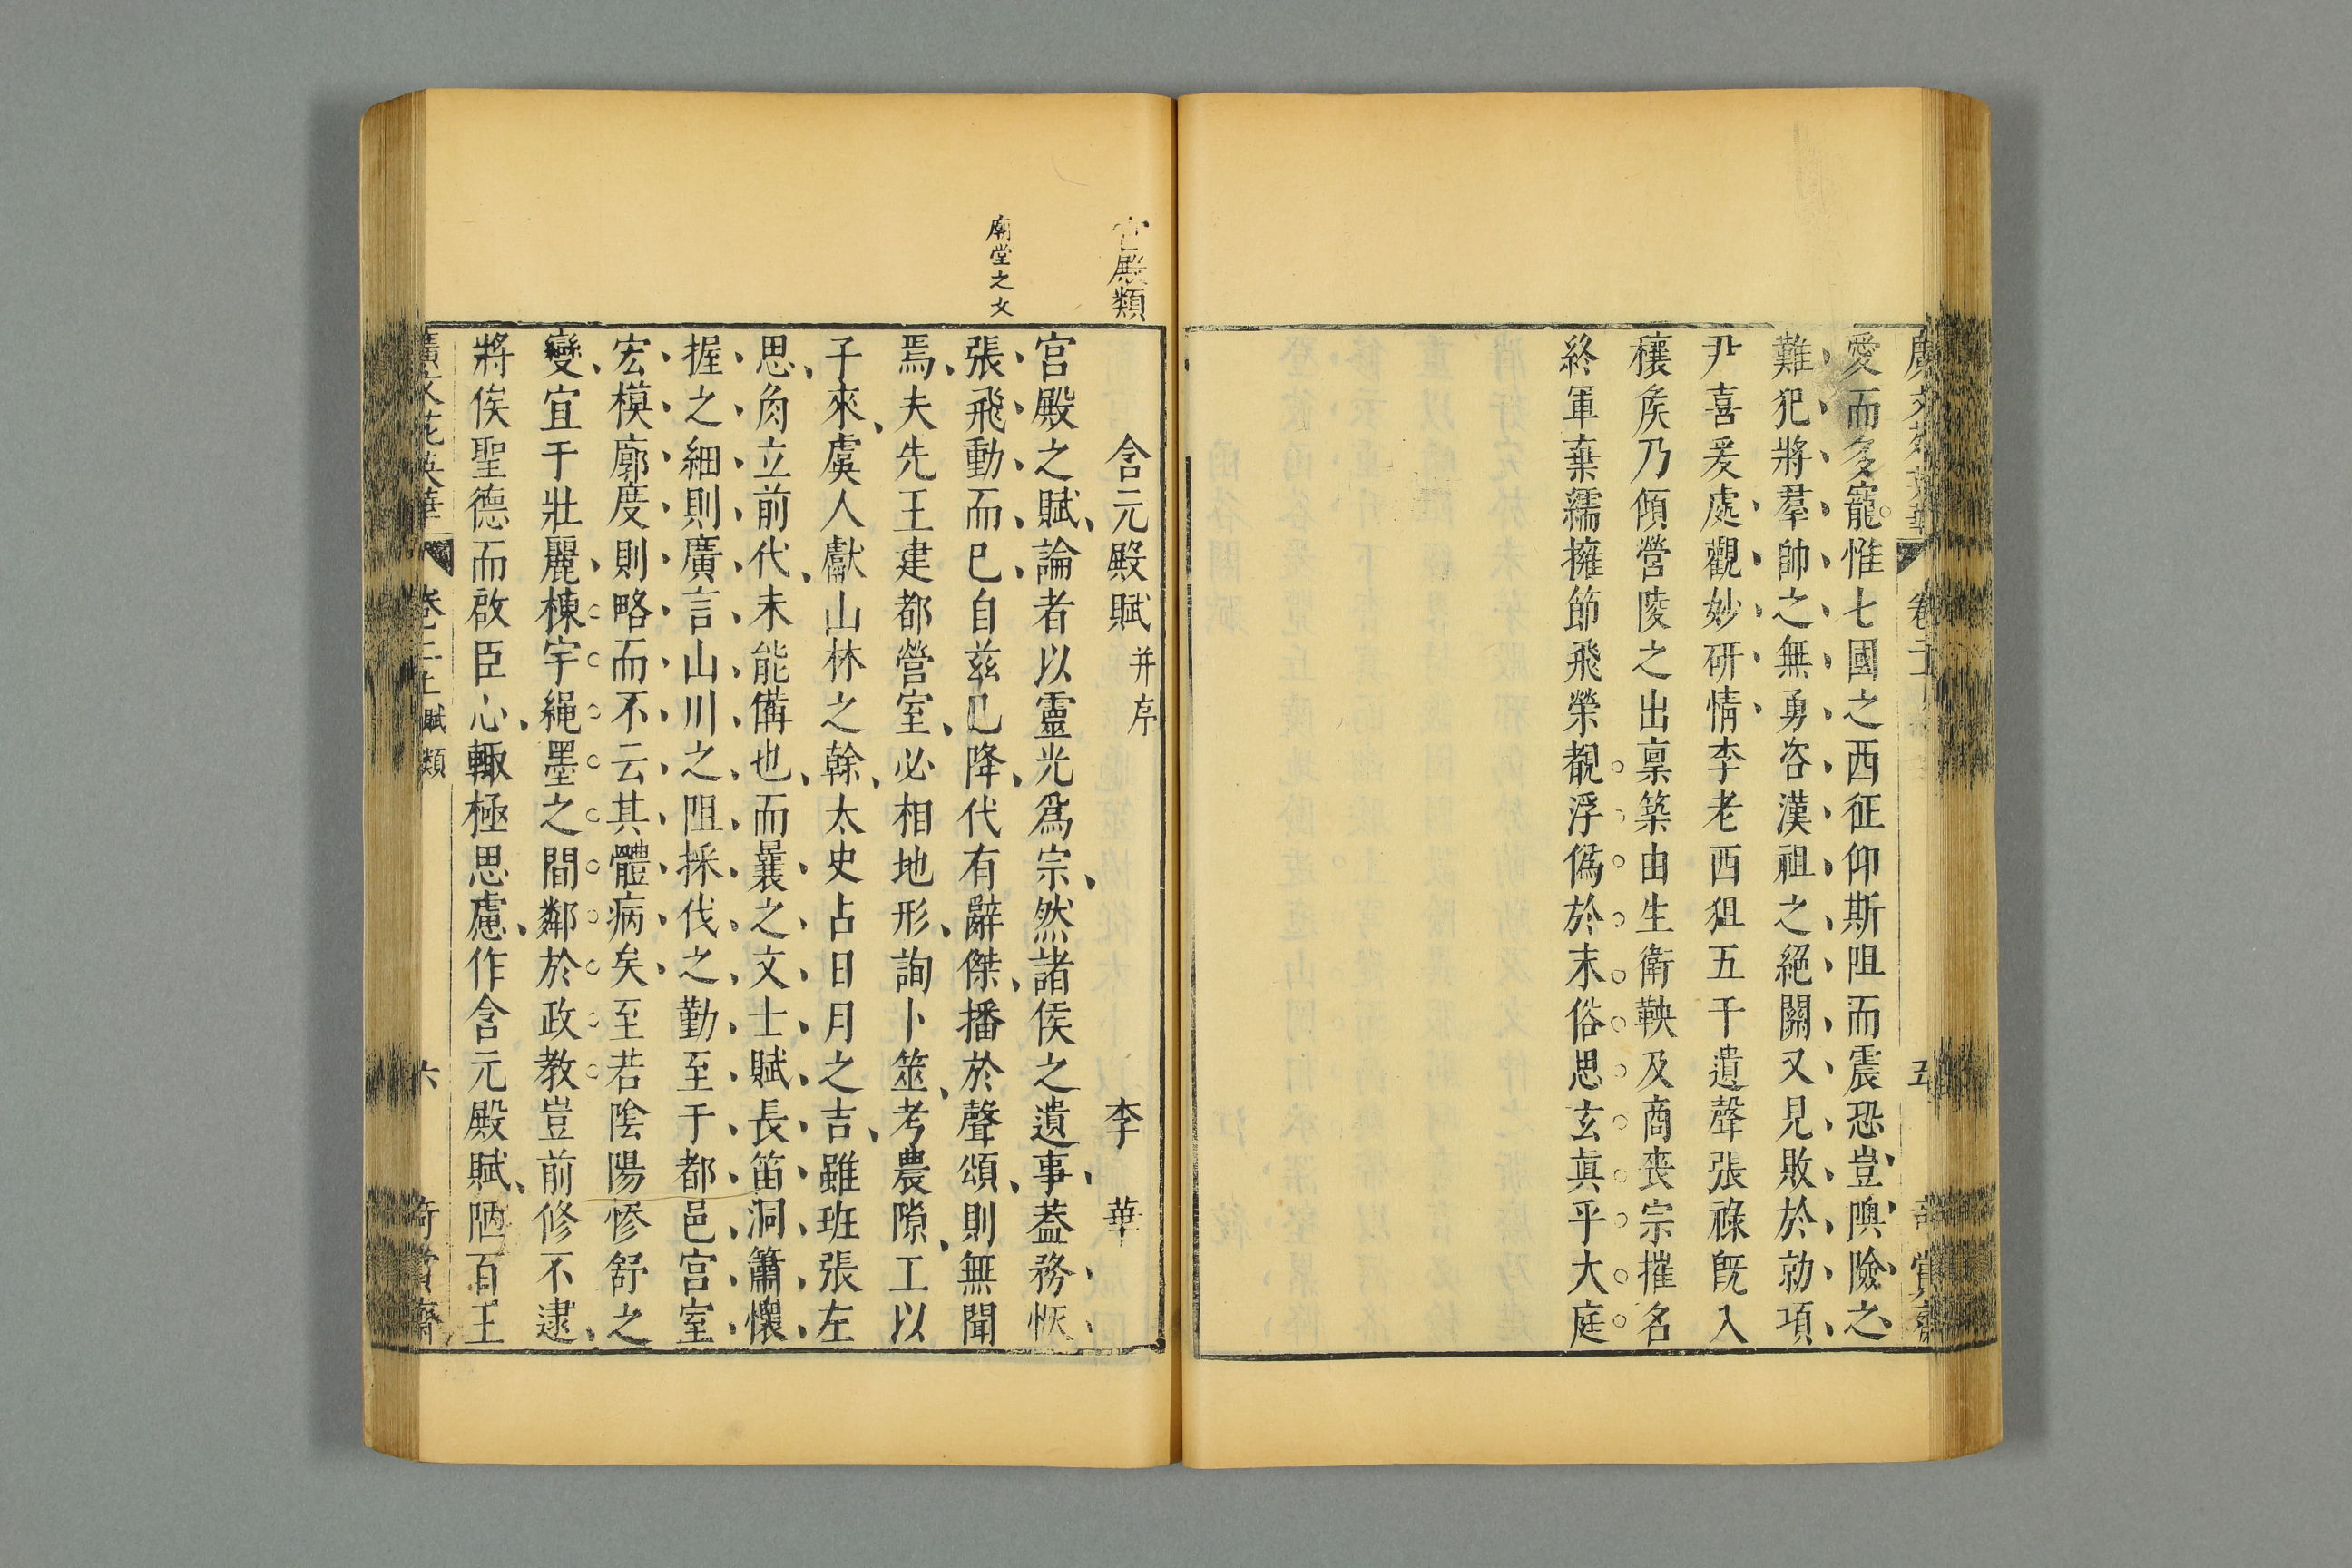 愛而多寵惟七國之西征仰斯阻而震恐豈隩險之
難犯將羣帥之無勇咨漢祖之絕關又見敗於勍項
尹喜爰處觀妙研情李老西徂五千遺聲張祿旣入
穰矦乃傾營陵之出稟築由生衛鞅及商喪宗摧名
終軍棄繻擁節飛榮覩浮僞於末俗思玄眞乎大庭
五
宮殿類
含元殿賦并序 李華
宮殿之賦論者以靈光爲宗然諸侯之遺事葢務恢
張飛動而已自茲已降代有辭傑播於聲頌則無聞
廟堂之文
焉夫先王建都營室必相地形詢卜筮考農隙工以
子來虞人獻山林之榦太史占日月之吉雖班張左
思角立前代未能備也而曩之文士賦長笛洞簫懷
握之細則廣言山川之阻採伐之勤至于都邑宮室
宏模廓度則略而不云其體病矣至若陰陽慘舒之
變宜于壯麗棟宇繩墨之間鄰於政教豈前修不逮
將俟聖德而啟臣心輙極思慮作含元殿賦陋百王
廣文苑英華 卷二上 賦類 六 奇賞齋